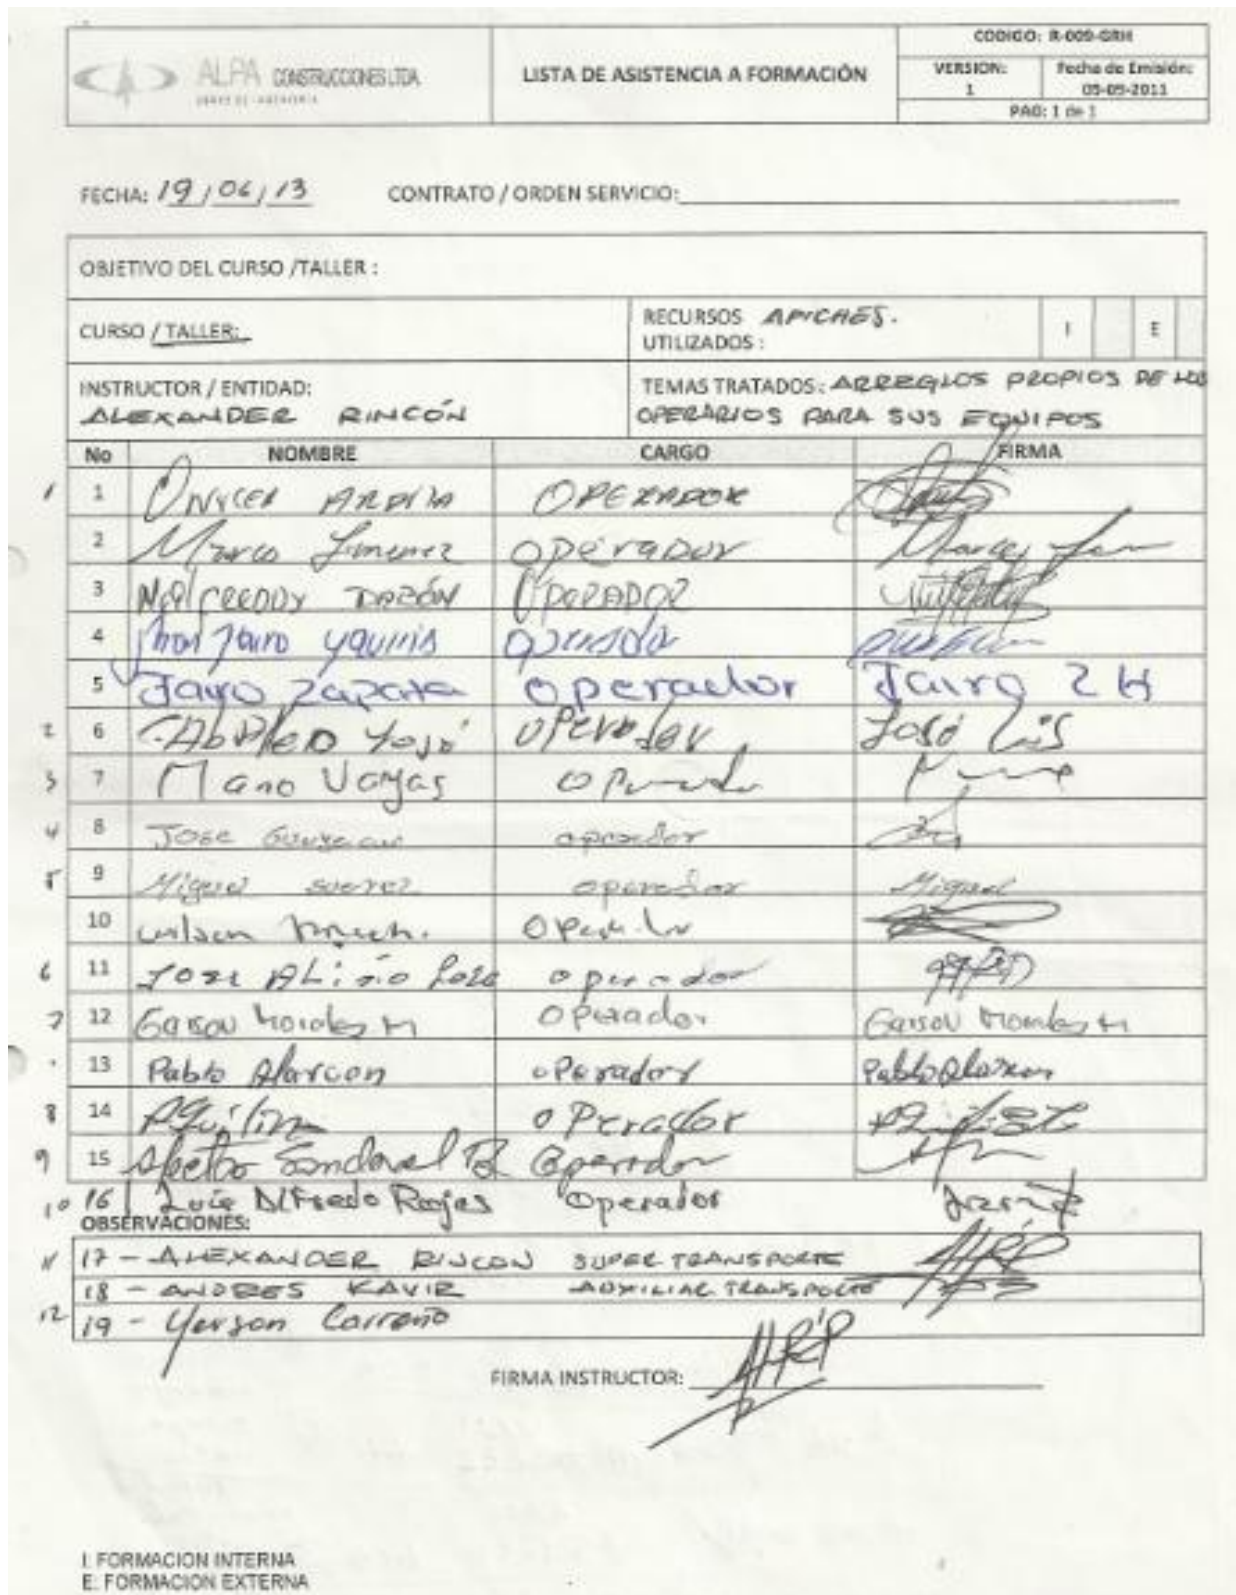 CODIGO: R-009-GRH
ALPA CONSTRUCCIONES LTDA.
LISTA DE ASISTENCIA A FORMACIÓN
VERSION: 1
Fecha de Emisión: 05-05-2011
PAG: 1 de 1
FECHA: 19/06/13 CONTRATO / ORDEN SERVICIO:
OBJETIVO DEL CURSO /TALLER :
CURSO / TALLER:
RECURSOS UTILIZADOS : APICHES.
I E
INSTRUCTOR / ENTIDAD:
ALEXANDER RINCÓN
TEMAS TRATADOS: ARREGLOS PROPIOS DE LOS
OPERARIOS PARA SUS EQUIPOS
No NOMBRE CARGO FIRMA
1 1 ARDILA OPERADOR
2 Marco Jimenez operador
3 OPERADOR
4 Jhon Jairo
5 Jairo Zapata operador Jairo Z H
2 6 José operador José Luis
3 7 Vargas
4 8 Jose operador
5 9 Miguel suarez operador Miguel
10 wilson
6 11 Jose operador
7 12 Garson Morales M Operador Garson Morales M
13 Pablo Alarcon operador Pablo Alarcon
8 14 operador
9 15 Sandoval Operador
10 16 Luis Alfredo Rojas Operador
OBSERVACIONES:
11 17 - ALEXANDER RINCON SUPER TRANSPORTE
18 - ANDRES AUXILIAR TRANSPORTE
12 19 - Yerson Carreño
FIRMA INSTRUCTOR:
I: FORMACION INTERNA
E: FORMACION EXTERNA